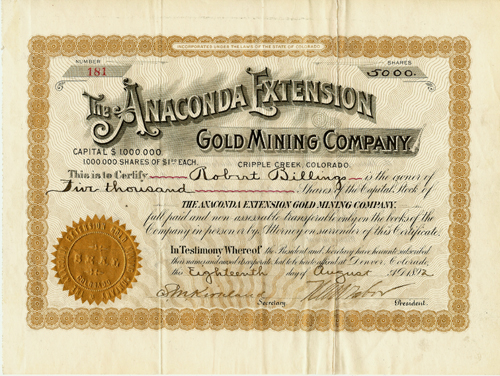 INCORPORATED UNDER THE LAWS OF THE STATE OF COLORADO.
NUMBER
181
SHARES
5000.
THE ANACONDA EXTENSION
GOLD MINING COMPANY.
CAPITAL $1,000,000
1,000,000 SHARES OF $1.00 EACH.
CRIPPLE CREEK, COLORADO.
This is to Certify Robert Billings is the owner of
Five thousand Shares of the Capital Stock of
THE ANACONDA EXTENSION GOLD MINING COMPANY.
full paid and non assessable transferable only on the books of the
Company in person or by Attorney on surrender of this Certificate.
In Testimony Whereof the President and Secretary have hereunto subscribed
their names and caused the corporate Seal to be hereto affixed at Denver, Colorado,
the Eighteenth day of August A.D. 1892
Secretary.
President.
SEAL